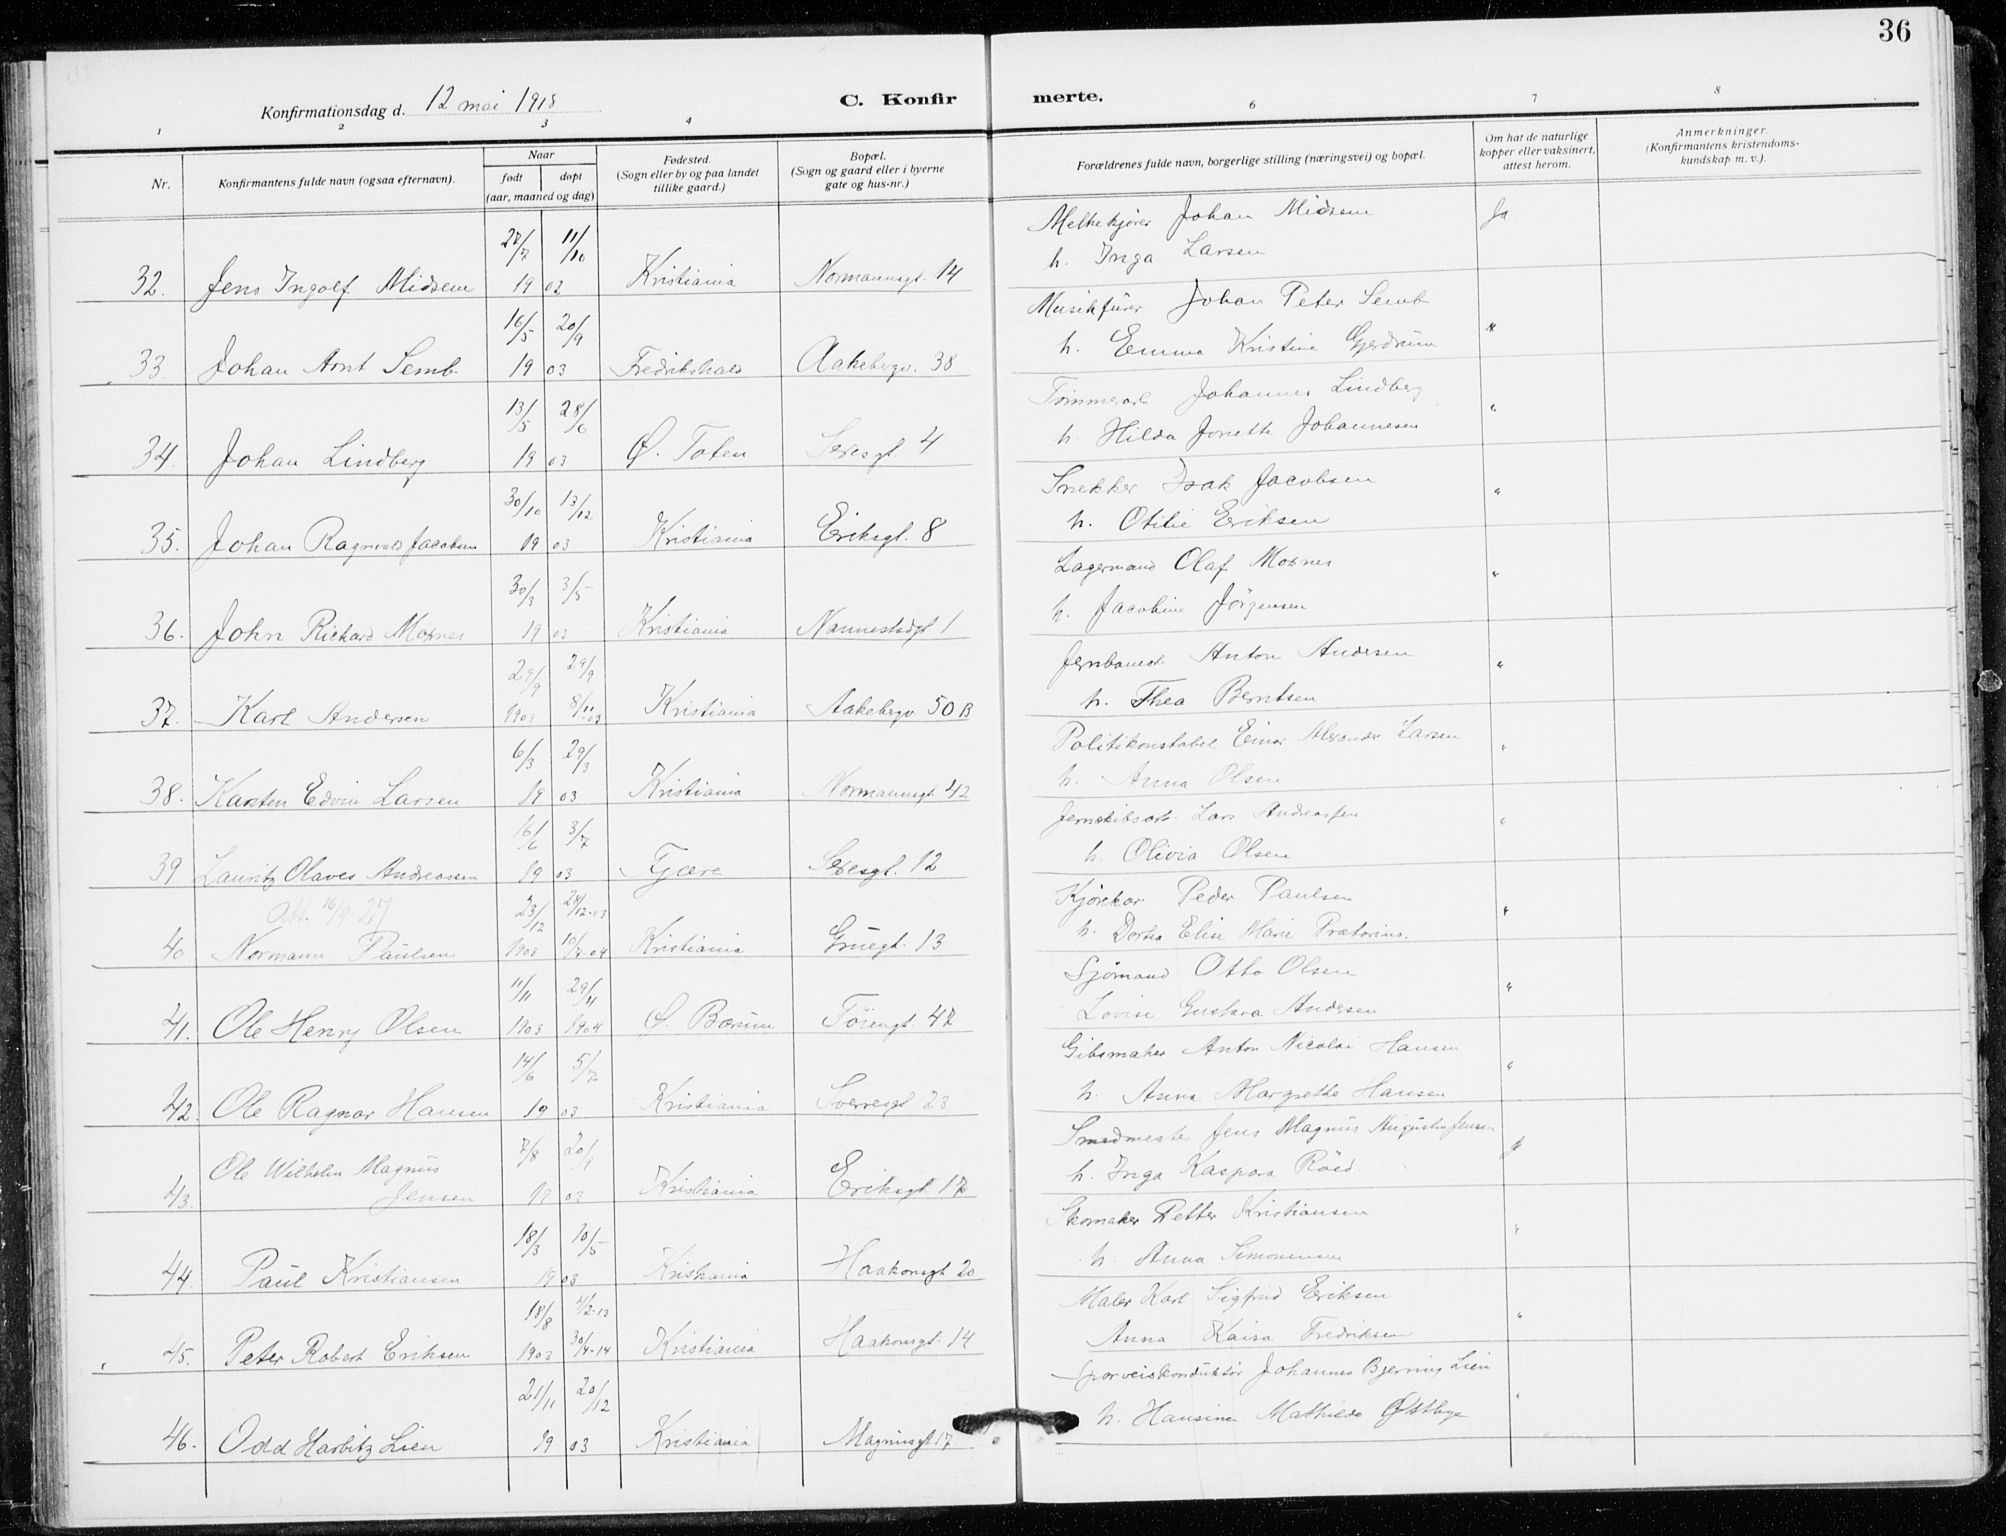 36
Konfirmationsdag d. 12 mai 1918
C. Konfir
merte.
1 2 3 4 6 7 8
Nr.
Konfirmantens fulde navn (ogsaa efternavn).
Naar
født
døpt
(aar, maaned og dag)
Fødested.
(Sogn eller by og paa landet
tillike gaard.)
Bopæl.
(Sogn og gaard eller i byerne
gate og hus-nr.)
Forældrenes fulde navn, borgerlige stilling (næringsvei) og bopæl.
Om hat de naturlige
kopper eller vaksinert,
attest herom.
Anmerkninger.
(Konfirmantens kristendoms-
kundskap m. v.).
27/7 11/10 Melkekjører Johan Midsem Ja
32. Jens Ingolf Midsem 19 02 Kristiania Normannsgt. 14 h. Inga Larsen
16/5 20/9 Musikfürer Johan Peter Semb "
33 Johan Arnt Semb 19 03 Fredrikshald Aakebergv. 38 h. Emma Kristine Gjerdrum
13/5 28/6 Tømmerarb. Johannes Lindberg "
34. Johan Lindberg 19 03 Ø. Toten Sexesgt 4 h. Hilda Jonette Johannesen
30/10 13/12 Snekker Isak Jacobsen "
35. Johan Ragnvald Jacobsen 19 03 Kristiania Eriksgt. 8 h. Otilie Eriksen
30/3 3/5 Lagermand Olaf Moxnes "
36. John Richard Moxnes 19 03 Kristiania Nannestadgt 1 h. Jacobine Jørgensen
29/9 29/9 Jernbanearb. Anton Andersen "
37. Karl Andersen 1903 8/11-03 Kristiania Aakebergv 50 B h. Thea Berntsen
6/3 29/3 Politikonstabel Einar Alexander Larsen "
38. Karsten Edvin Larsen 19 03 Kristiania Normannsgt 42 h. Anna Olsen
16/6 3/7 Jernskibsarb. Lars Andreassen "
39 Lauritz Olaves Andreassen 19 03 Fjære Sexesgt. 12 h. Olivia Olsen
Att. 16/9 27 23/12 24/12-03 Kjørekar Peder Paulsen "
40 Normann Paulsen 1903 10/4-04 Kristiania Grüegt. 13 h. Dortea Elise Marie Prætorius.
11/11 29/11 Sjømand Otto Olsen "
41. Ole Henry Olsen 1903 1904 Ø. Bærum Töiengt. 47 Lovise Gustava Andersen
14/6 5/7 Gibsmaker Anton Nicolai Hansen "
42. Ole Ragnar Hansen 19 03 Kristiania Sverresgt 23 h. Anna Margrethe Hansen
Ole Wilhelm Magnus 7/8 20/9 Smedmester Jens Magnus Augustin Jensen
43. Jensen 19 03 Kristiania Eriksgt. 17 h. Inga Kaspara Röed.
18/3 10/5 Skomaker Petter Kristiansen "
44. Paul Kristiansen 19 03 Kristiania Haakonsgt 20 h. Anna Simonensen
18/8 4/2-13 Maler Karl Sigfrid Eriksen "
45. Peter Robert Eriksen 1903 30/4-14 Kristiania Haakonsgt. 14 Anna Kaisa Fredriksen
21/11 20/12 Sporveiskonduktör Johannes Bjerning Lien "
46. Odd Harbitz Lien 19 03 Kristiania Magnusgt 17 h. Hansine Mathilde Østbye